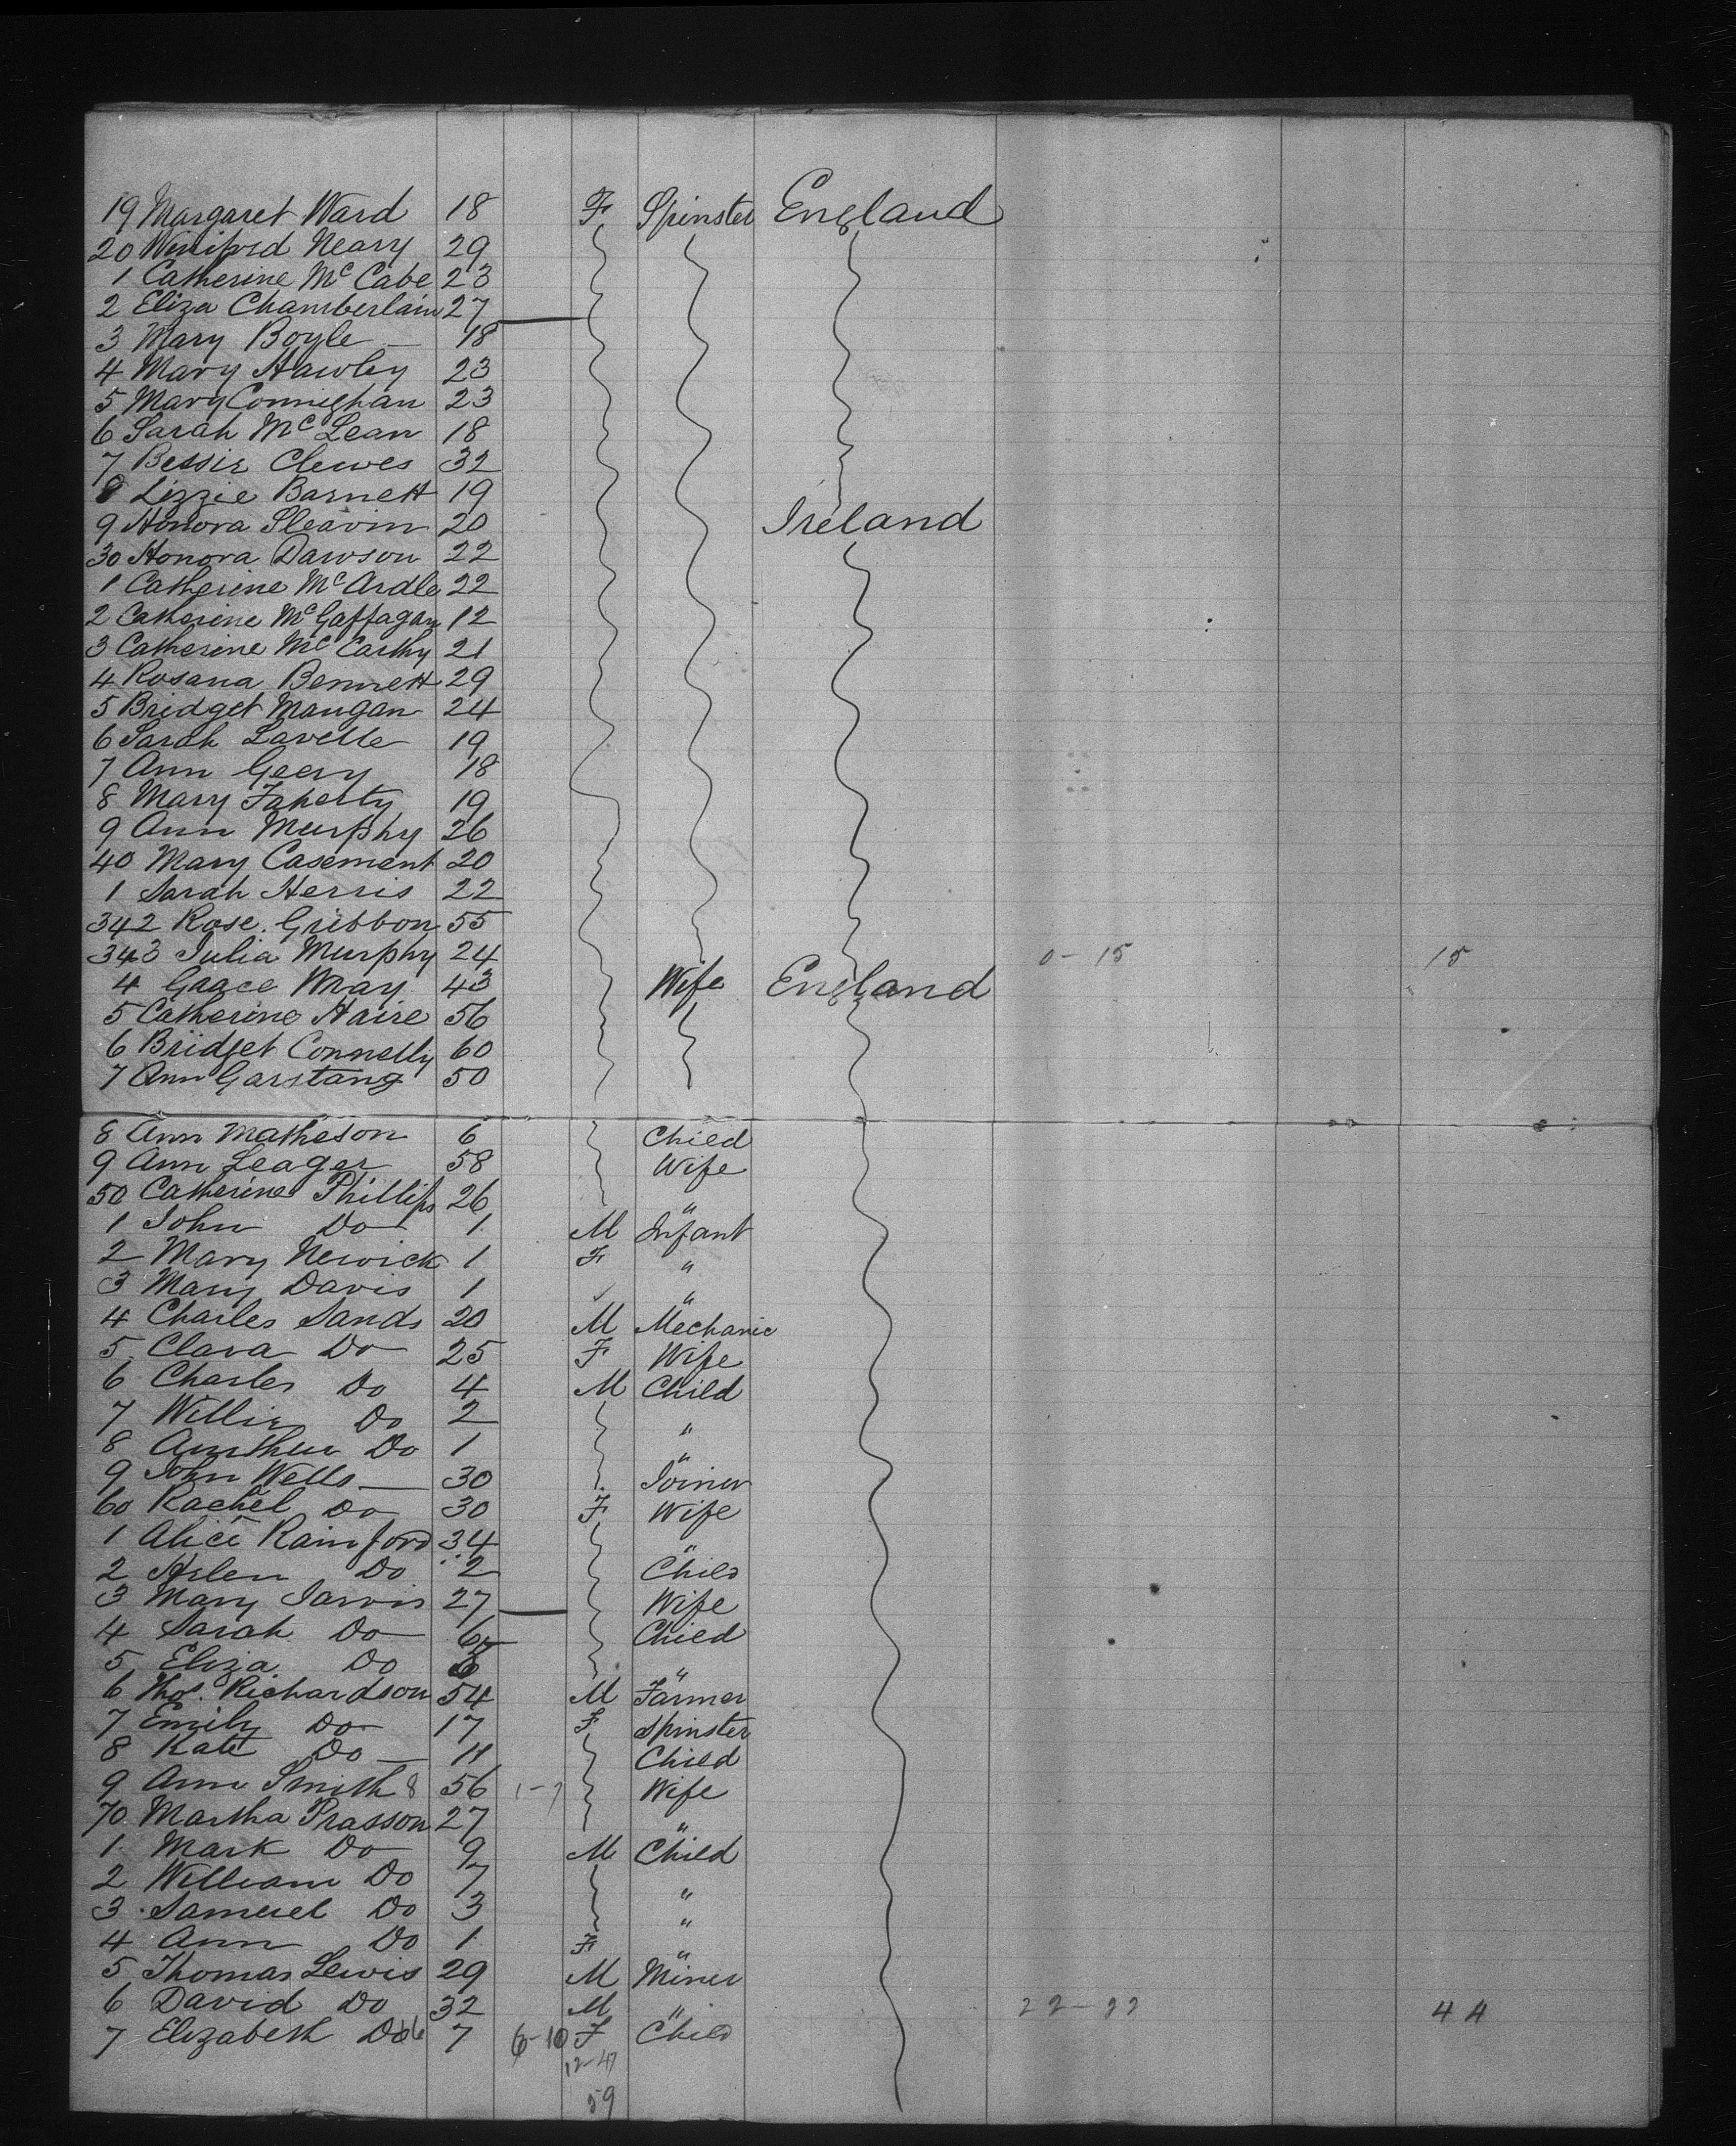 19 Margaret Ward 18 F Spinster England
20 Winifred Neary 29
1 Catherine McCabe 23
2 Eliza Chamberlain 27
3 Mary Boyle 18
4 Mary Hawley 23
5 Mary Connighan 23
6 Sarah McLean 18
7 Bessie Clewes 32
8 Lizzie Barnett 19
9 Honora Sleavin 20 Ireland
30 Honora Dawson 22
1 Catherine McArdle 22
2 Catherine McGaffagan 12
3 Catherine McCarthy 21
4 Rosana Bennett 29
5 Bridget Mangan 24
6 Sarah Lavelle 19
7 Ann Geery 18
8 Mary Faherty 19
9 Ann Murphy 26
40 Mary Casement 20
1 Sarah Herris 22
342 Rose Gribbon 55
343 Julia Murphy 24 0-15 15
4 Grace Wray 43 Wife England
5 Catherine Haire 56
6 Bridget Connelly 60
7 Ann Garstang 50
8 Ann Matheson 6 Child
9 Ann Leager 58 Wife
50 Catherine Phillips 26 "
1 John Do 1 M Infant
2 Mary Newick 1 F "
3 Mary Davis 1 "
4 Charles Sands 20 M Mechanic
5 Clara Do 25 F Wife
6 Charles Do 4 M Child
7 Willie Do 2 "
8 Aurthur Do 1 "
9 John Wells 30 Joiner
60 Rachel Do 30 F Wife
1 Alice Rainford 34 "
2 Helen Do 2 Child
3 Mary Jarvis 27 Wife
4 Sarah Do 6 Child
5 Eliza Do "
6 Thos. Richardson 54 M Farmer
7 Emily Do 17 F Spinster
8 Kate Do 11 Child
9 Ann Smith 8 56 1-7 Wife
70 Martha Prasson 27 "
1 Mark Do 9 M Child
2 William Do 7 "
3 Samuel Do 3 "
4 Ann Do 1 F "
5 Thomas Lewis 29 M Miner
6 David Do 32 M " 22-22 44
7 Elizabeth Do 7 6-10 F Child
12-47
59